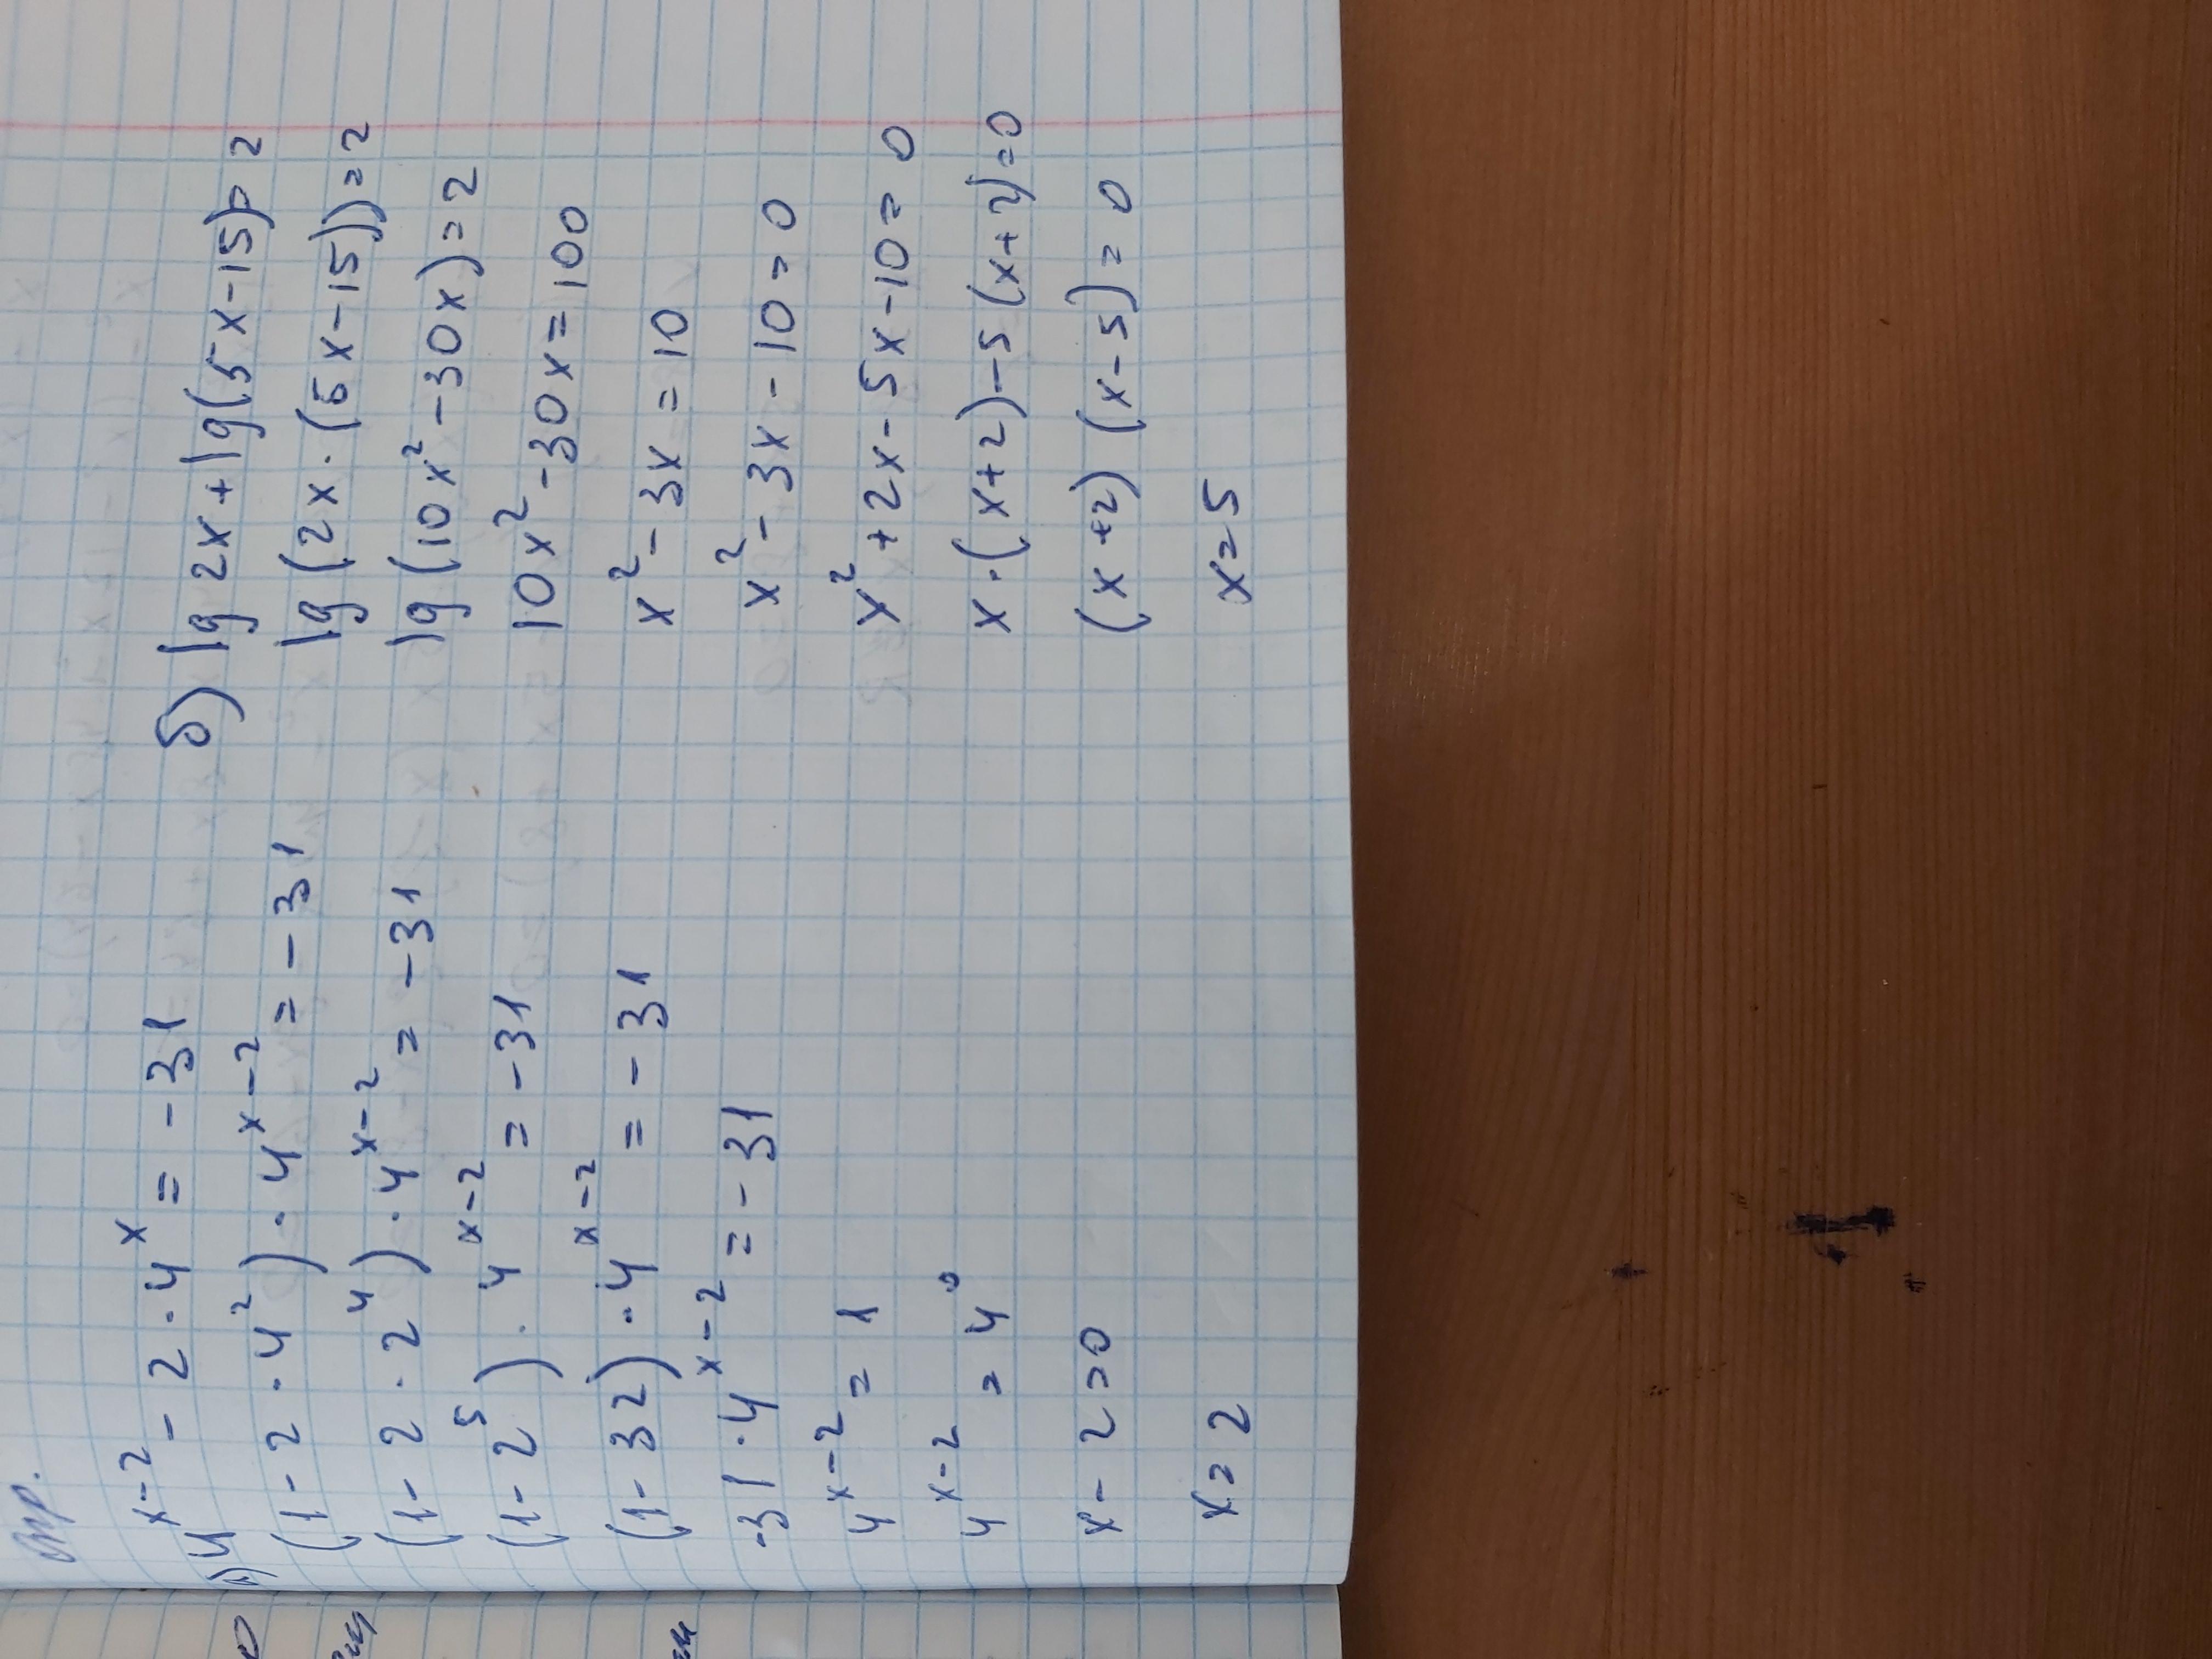 а) 4^(x-2) - 2 · 4^x = -31
(1 - 2 · 4^2) · 4^(x-2) = -31
(1 - 2 · 2^4) · 4^(x-2) = -31
(1 - 2^5) · 4^(x-2) = -31
(1 - 32) · 4^(x-2) = -31
-31 · 4^(x-2) = -31
4^(x-2) = 1
4^(x-2) = 4^0
x - 2 = 0
x = 2
б) lg 2x + lg(5x - 15) = 2
lg(2x · (5x - 15)) = 2
lg(10x^2 - 30x) = 2
10x^2 - 30x = 100
x^2 - 3x = 10
x^2 - 3x - 10 = 0
x^2 + 2x - 5x - 10 = 0
x · (x + 2) - 5(x + 2) = 0
(x + 2)(x - 5) = 0
x = 5